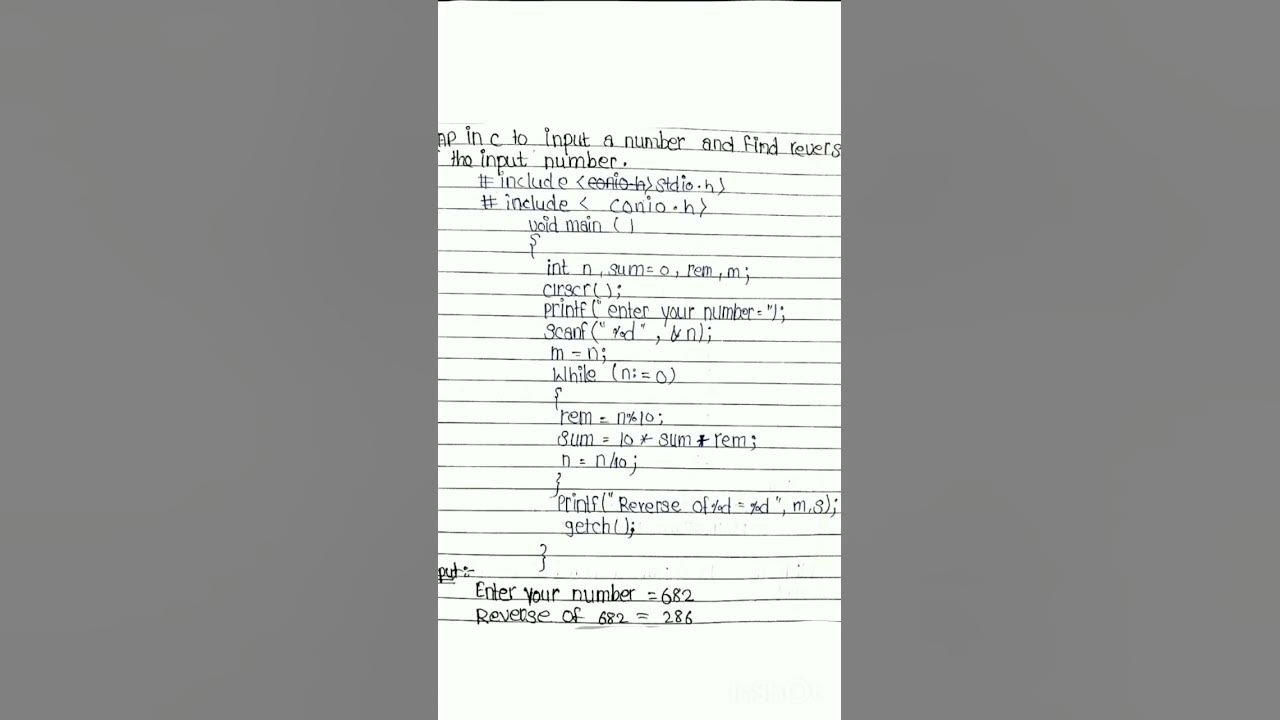 AP in c to input a number and find revers
the input number.
# include <conio.h> stdio.h>
# include < conio.h>
void main ()
{
int n, sum=0, rem, m;
clrscr();
printf("enter your number=");
Scanf("%d", &n);
m = n;
While (n!=0)
{
rem = n%10;
sum = 10 * sum + rem;
n = n/10;
}
Printf("Reverse of %d = %d", m,s);
getch();
}
put:-
Enter your number = 682
Reverse of 682 = 286